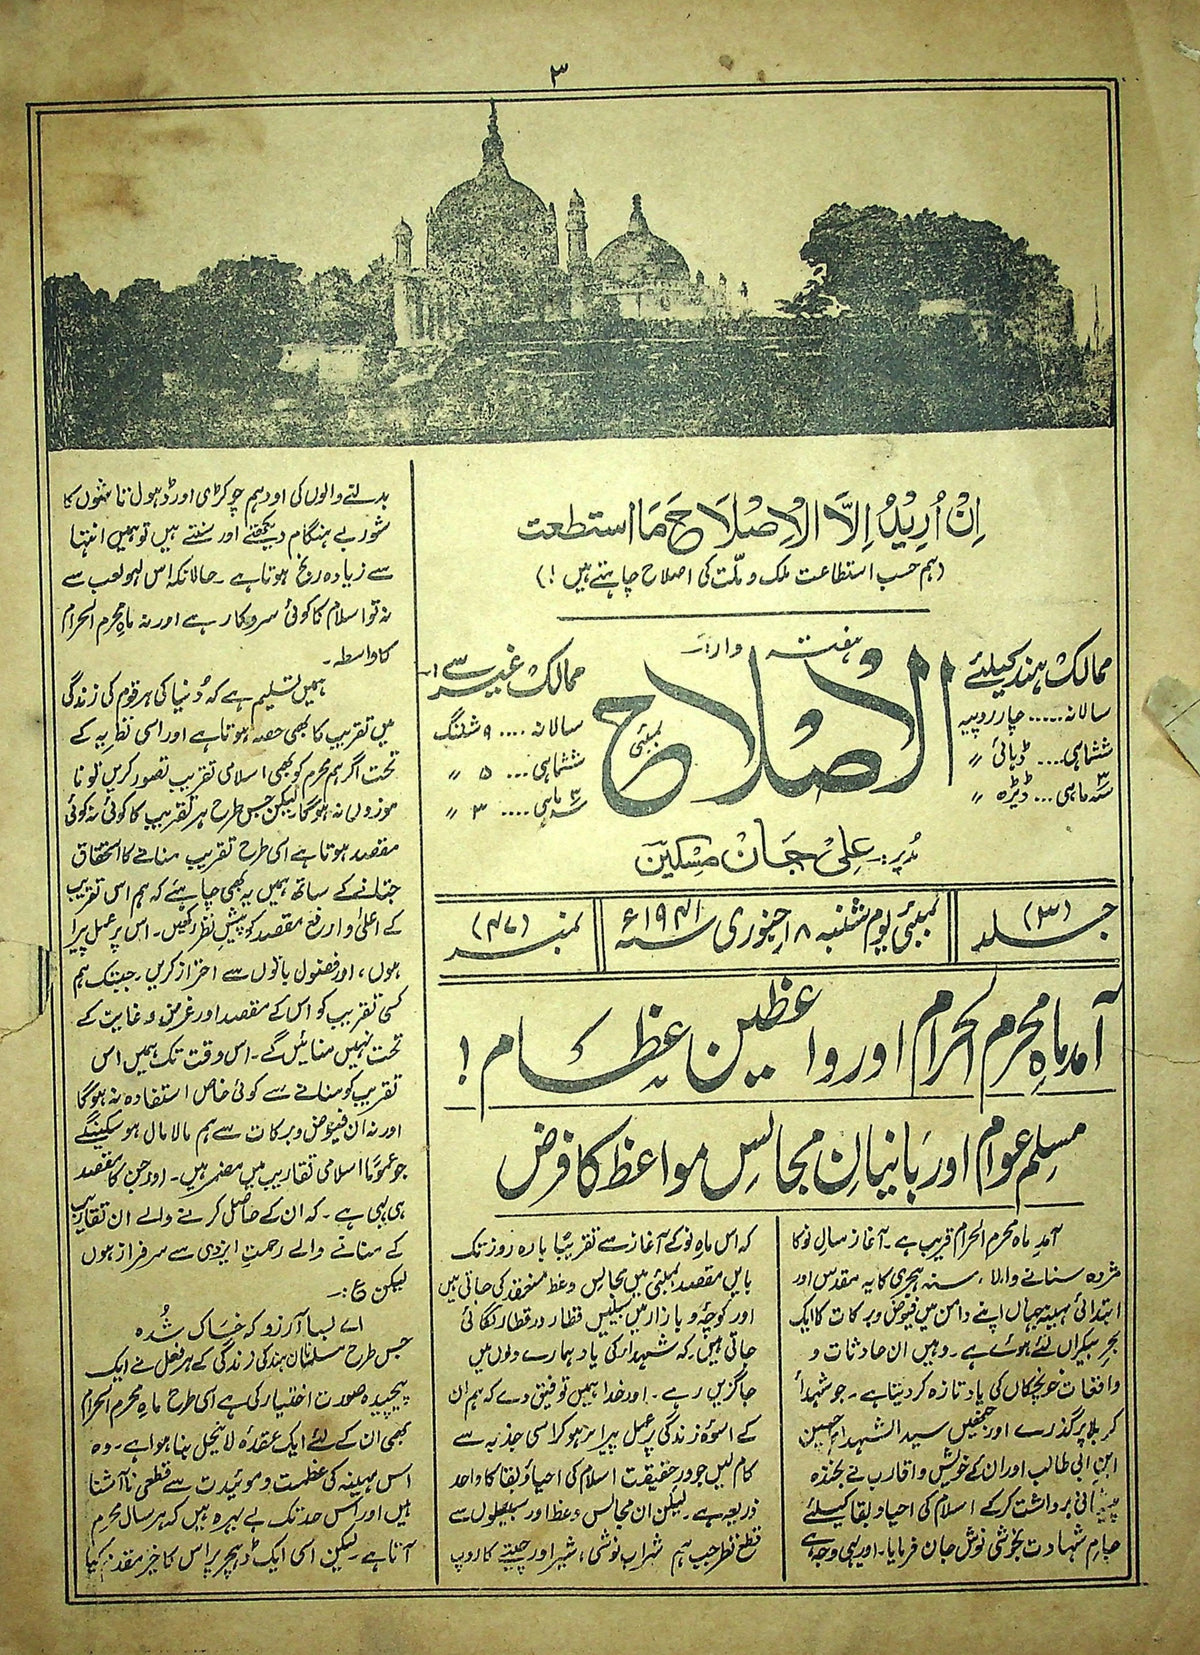 ۳
اِنْ اُرِيْدُ اِلَّا الْاِصْلَاحَ مَا اسْتَطَعت
(ہم حسب استطاعت ملک و ملّت کی اصلاح چاہتے ہیں !)
ہفتہ وار:۔
الاصلاح
بمبئی
ممالک ہند کیلئے
سالانہ ..... چار روپیہ
ششماہی .... ڈہائی 〃
سہ ماہی ... ڈیڑہ 〃
ممالک غیر سے :۔
سالانہ .... ۹ شلنگ
ششماہی ... ۵ 〃
سہ ماہی .... ۳ 〃
مدیر:۔ علی جان مسکین
جلد (۳)
بمبئی یوم شنبہ ۱۸ جنوری سنہ ۱۹۴۱ء
نمبر (۴۷)
آمد ماہِ محرم الحرام اور واعظین عظام !
مسلم عوام اور بانیانِ مجالسِ مواعظ کا فرض
آمدِ ماہ محرم الحرام قریب ہے۔ آغاز سالِ نو کا
مژدہ سنانے والا، سنہ ہجری کا یہ مقدس اور
ابتدائی مہینہ جہاں اپنے دامن میں فیوض و برکات کا ایک
بحرِ بیکراں لئے ہوئے ہے۔ وہیں ان حادثات و
واقعات خونچکاں کی یاد تازہ کر دیتا ہے۔ جو شہدأ
کربلا پر گذرے اور جنھیں سید الشہدا امام حسین
ابنِ ابی طالب اور ان کے خویش و اقارب نے بخندہ
پیشانی برداشت کر کے اسلام کی احیا و بقا کیلئے
جامِ شہادت بخوشی نوشِ جان فرمایا۔ اور یہی وجہ ہے
کہ اس ماہِ نو کے آغاز سے تقریبًا بارہ روز تک
بایں مقصد بمبئی میں مجالس وعظ منعقد کی جاتی ہیں
اور کوچہ و بازار میں سبیلیں قطار در قطار لگائی
جاتی ہیں۔ کہ شہدا کی یاد ہمارے دلوں میں
جاگزیں رہے۔ اور خدا ہمیں توفیق دے کہ ہم ان
کے اسوہ زندگی پر عمل پیرا ہو کر اسی جذبہ سے
کام لیں جو در حقیقت اسلام کی احیا و بقا کا واحد
ذریعہ ہے۔ لیکن ان مجالس وعظ اور سبیلوں سے
قطع نظر جب ہم شراب نوشی، شیر اور چیتے کا روپ
بدلنے والوں کی اودہم چوکڑی اور ڈہول تاشوں کا
شور بے ہنگام دیکھتے اور سنتے ہیں تو ہمیں انتہا
سے زیادہ رنج ہوتا ہے۔ حالانکہ اس لہو لعب سے
نہ تو اسلام کا کوئی سروکار ہے اور نہ ماہِ محرم الحرام
کا واسطہ۔
ہمیں تسلیم ہے کہ دُنیا کی ہر قوم کی زندگی
میں تقریب کا بھی حصہ ہوتا ہے اور اسی نظریہ کے
تحت اگر ہم محرم کو بھی اسلامی تقریب تصور کریں تو نا
موزوں نہ ہوگا لیکن جس طرح ہر تقریب کا کوئی نہ کوئی
مقصد ہوتا ہے اسی طرح تقریب منانے کا استحقاق
جتلانے کے ساتھ ہمیں یہ بھی چاہئے کہ ہم اس تقریب
کے اعلیٰ و ارفع مقصد کو پیشِ نظر رکھیں۔ اس پر عمل پیرا
ہوں، اور فضول باتوں سے احتراز کریں۔ جبتک ہم
کسی تقریب کو اس کے مقصد اور غرض و غایت کے
تحت نہیں منائیں گے۔ اس وقت تک ہمیں اس
تقریب کو منانے سے کوئی خاص استفادہ نہ ہوگا
اور نہ ان فیوض و برکات سے ہم مالا مال ہو سکینگے
جو عمومًا اسلامی تقاریب میں مضمر ہیں۔ اور جن کا مقصد
ہی یہی ہے۔ کہ ان کے حاصل کرنے والے ان تقاریب
کے منانے والے رحمتِ ایزدی سے سرفراز ہوں
لیکن ع:۔
اے بسا آرزو کہ خاک شُدہ
جس طرح مسلمانِ ہند کی زندگی کے ہر فعل نے ایک
پیچیدہ صورت اختیار کی ہے اسی طرح ماہِ محرم الحرام
بھی ان کے لئے ایک عقدۂ لاینحل بنا ہوا ہے۔ وہ
اس مہینہ کی عظمت و موئیدت سے قطعی نا آشنا
ہیں اور اس حد تک بے بہرہ ہیں کہ ہر سال محرم
آتا ہے۔ لیکن اسی ایک ڈہچر پر اس کا خیر مقدم کیا